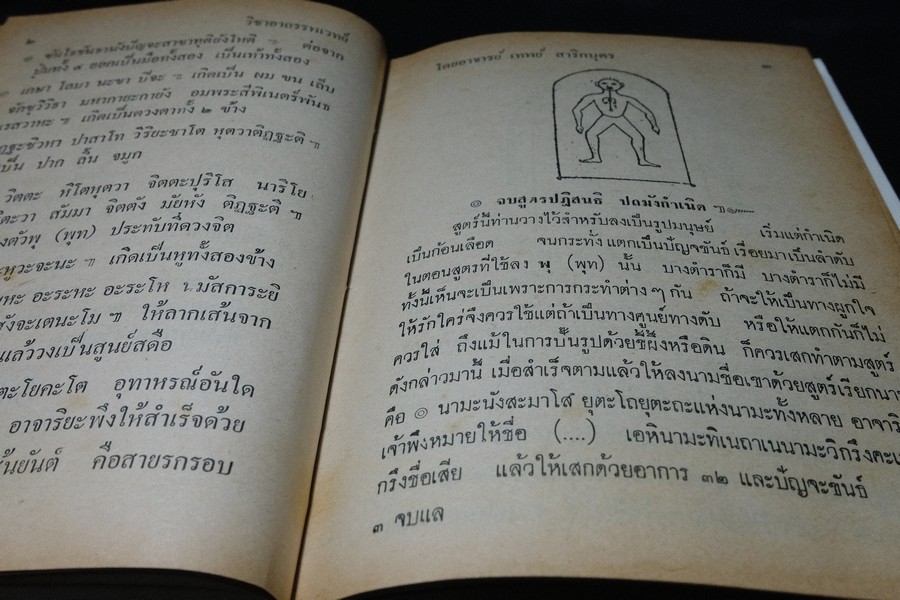 ๒ วิชาอาถรรพเวทย์
๑ ขันโธชันธานังปัญจะสาขาทุติยังโหติ ฯ ต่อจาก
ปุ่มทั้ง ๔ ออกเป็นมือทั้งสอง เป็นเท้าทั้งสอง
เกษา โลมา นะขา ปิจะ ฯ เกิดเป็น ผม ขน เล็บ
จักขุวิธิธา มหากายะกายัง อมพระสีพิเนตร์พันธ
รสวาหะ ฯ เกิดเป็นดวงตาทั้ง ๒ ข้าง
ฏฐะชิวหา ปาสาโท วิริยะชาโต หุตวาติฏฐะติ ฯ
เป็น ปาก ลิ้น จมูก
วิตตะ หิโตหุตวา จิตตะปุริโส นาริโย
ตะวา สัมมา จิตตัง มัยหัง ติฏฐะติ ฯ
งตัวพุ (พุท) ประทับที่ดวงจิต
ะหูวะจะนะ ฯ เกิดเป็นหูทั้งสองข้าง
ยหะ อะระหะ อะระโห มัสการะยิ
สังจะเตนะโม ฯ ให้ลากเส้นจาก
แล้ววงเป็นสูนย์สดือ
ตะโยคะโต อุทาหรณ์อันใด
อาจาริยะพึงให้สำเร็จด้วย
สันยันต์ คือสายรกรอบ
โดยอาจารย์ เทพย์ สาริกบุตร ๓
๏ จบสูตรปฏิสนธิ ปถมังกำเนิด ฯ๛
สูตร์นี้ท่านวางไว้สำหรับลงเป็นรูปมนุษย์ เริ่มแต่กำเนิด
เป็นก้อนเลือด จนกระทั้ง แตกเป็นปัญจขันธ์ เรื่อยมาเป็นลำดับ
ในตอนสูตรที่ใช้ลง พุ (พุท) นั้น บางตำราก็มี บางตำราก็ไม่มี
ทั้งนี้เห็นจะเป็นเพราะการกระทำต่าง ๆ กัน ถ้าจะให้เป็นทางผูกใจ
ให้รักใคร่จึงควรใช้แต่ถ้าเป็นทางศูนย์ทางดับ หรือให้แตกกันก็ไม่
ควรใส่ ถึงแม้ในการปั้นรูปด้วยขี้ผึ้งหรือดิน ก็ควรเสกทำตามสูตร์
ดังกล่าวมานี้ เมื่อสำเร็จตามแล้วให้ลงนามชื่อเขาด้วยสูตร์เรียกนาม
คือ ๏ นามะนังสะมาโส ยุตะโถยุตะถะแห่งนามะทั้งหลาย อาจาริ
เจ้าพึงหมายให้ชื่อ (....) เอหินามะทิเนถาเนนามะวิกรึงคะเ
กรึงชื่อเสีย แล้วให้เสกด้วยอาการ ๓๒ และปัญจะขันธ์
๓ จบแล